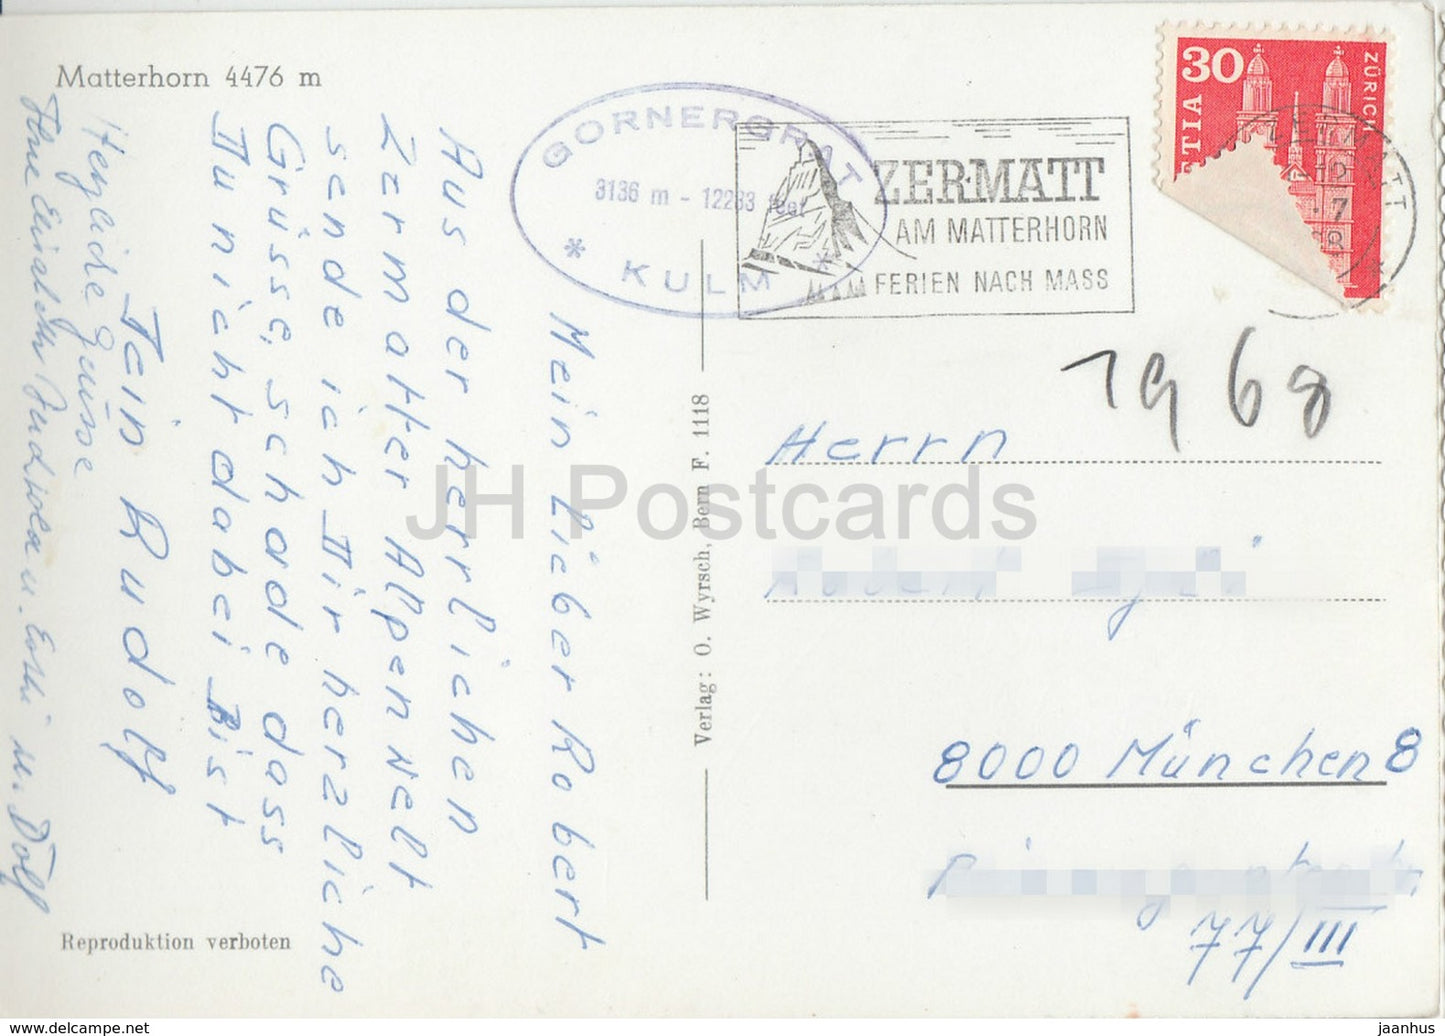 Matterhorn 4476 m
GORNERGRAT
3136 m - 12283 feet
* KULM *
ZERMATT
AM MATTERHORN
FERIEN NACH MASS
30
ZÜRICH
ZERMATT
1968
Mein Lieber Robert
Aus der herrlichen
Zermatter Alpenwelt
sende ich Dir herzliche
Grüsse, schade dass
Du nicht dabei Bist
Dein Rudolf
Herzliche Grüsse
u. Dolf
Verlag: O. Wyrsch, Bern F. 1118
Herrn
8000 München 8
77/III
Reproduktion verboten
JH Postcards
jaanhus - www.delcampe.net
jaanhus ©